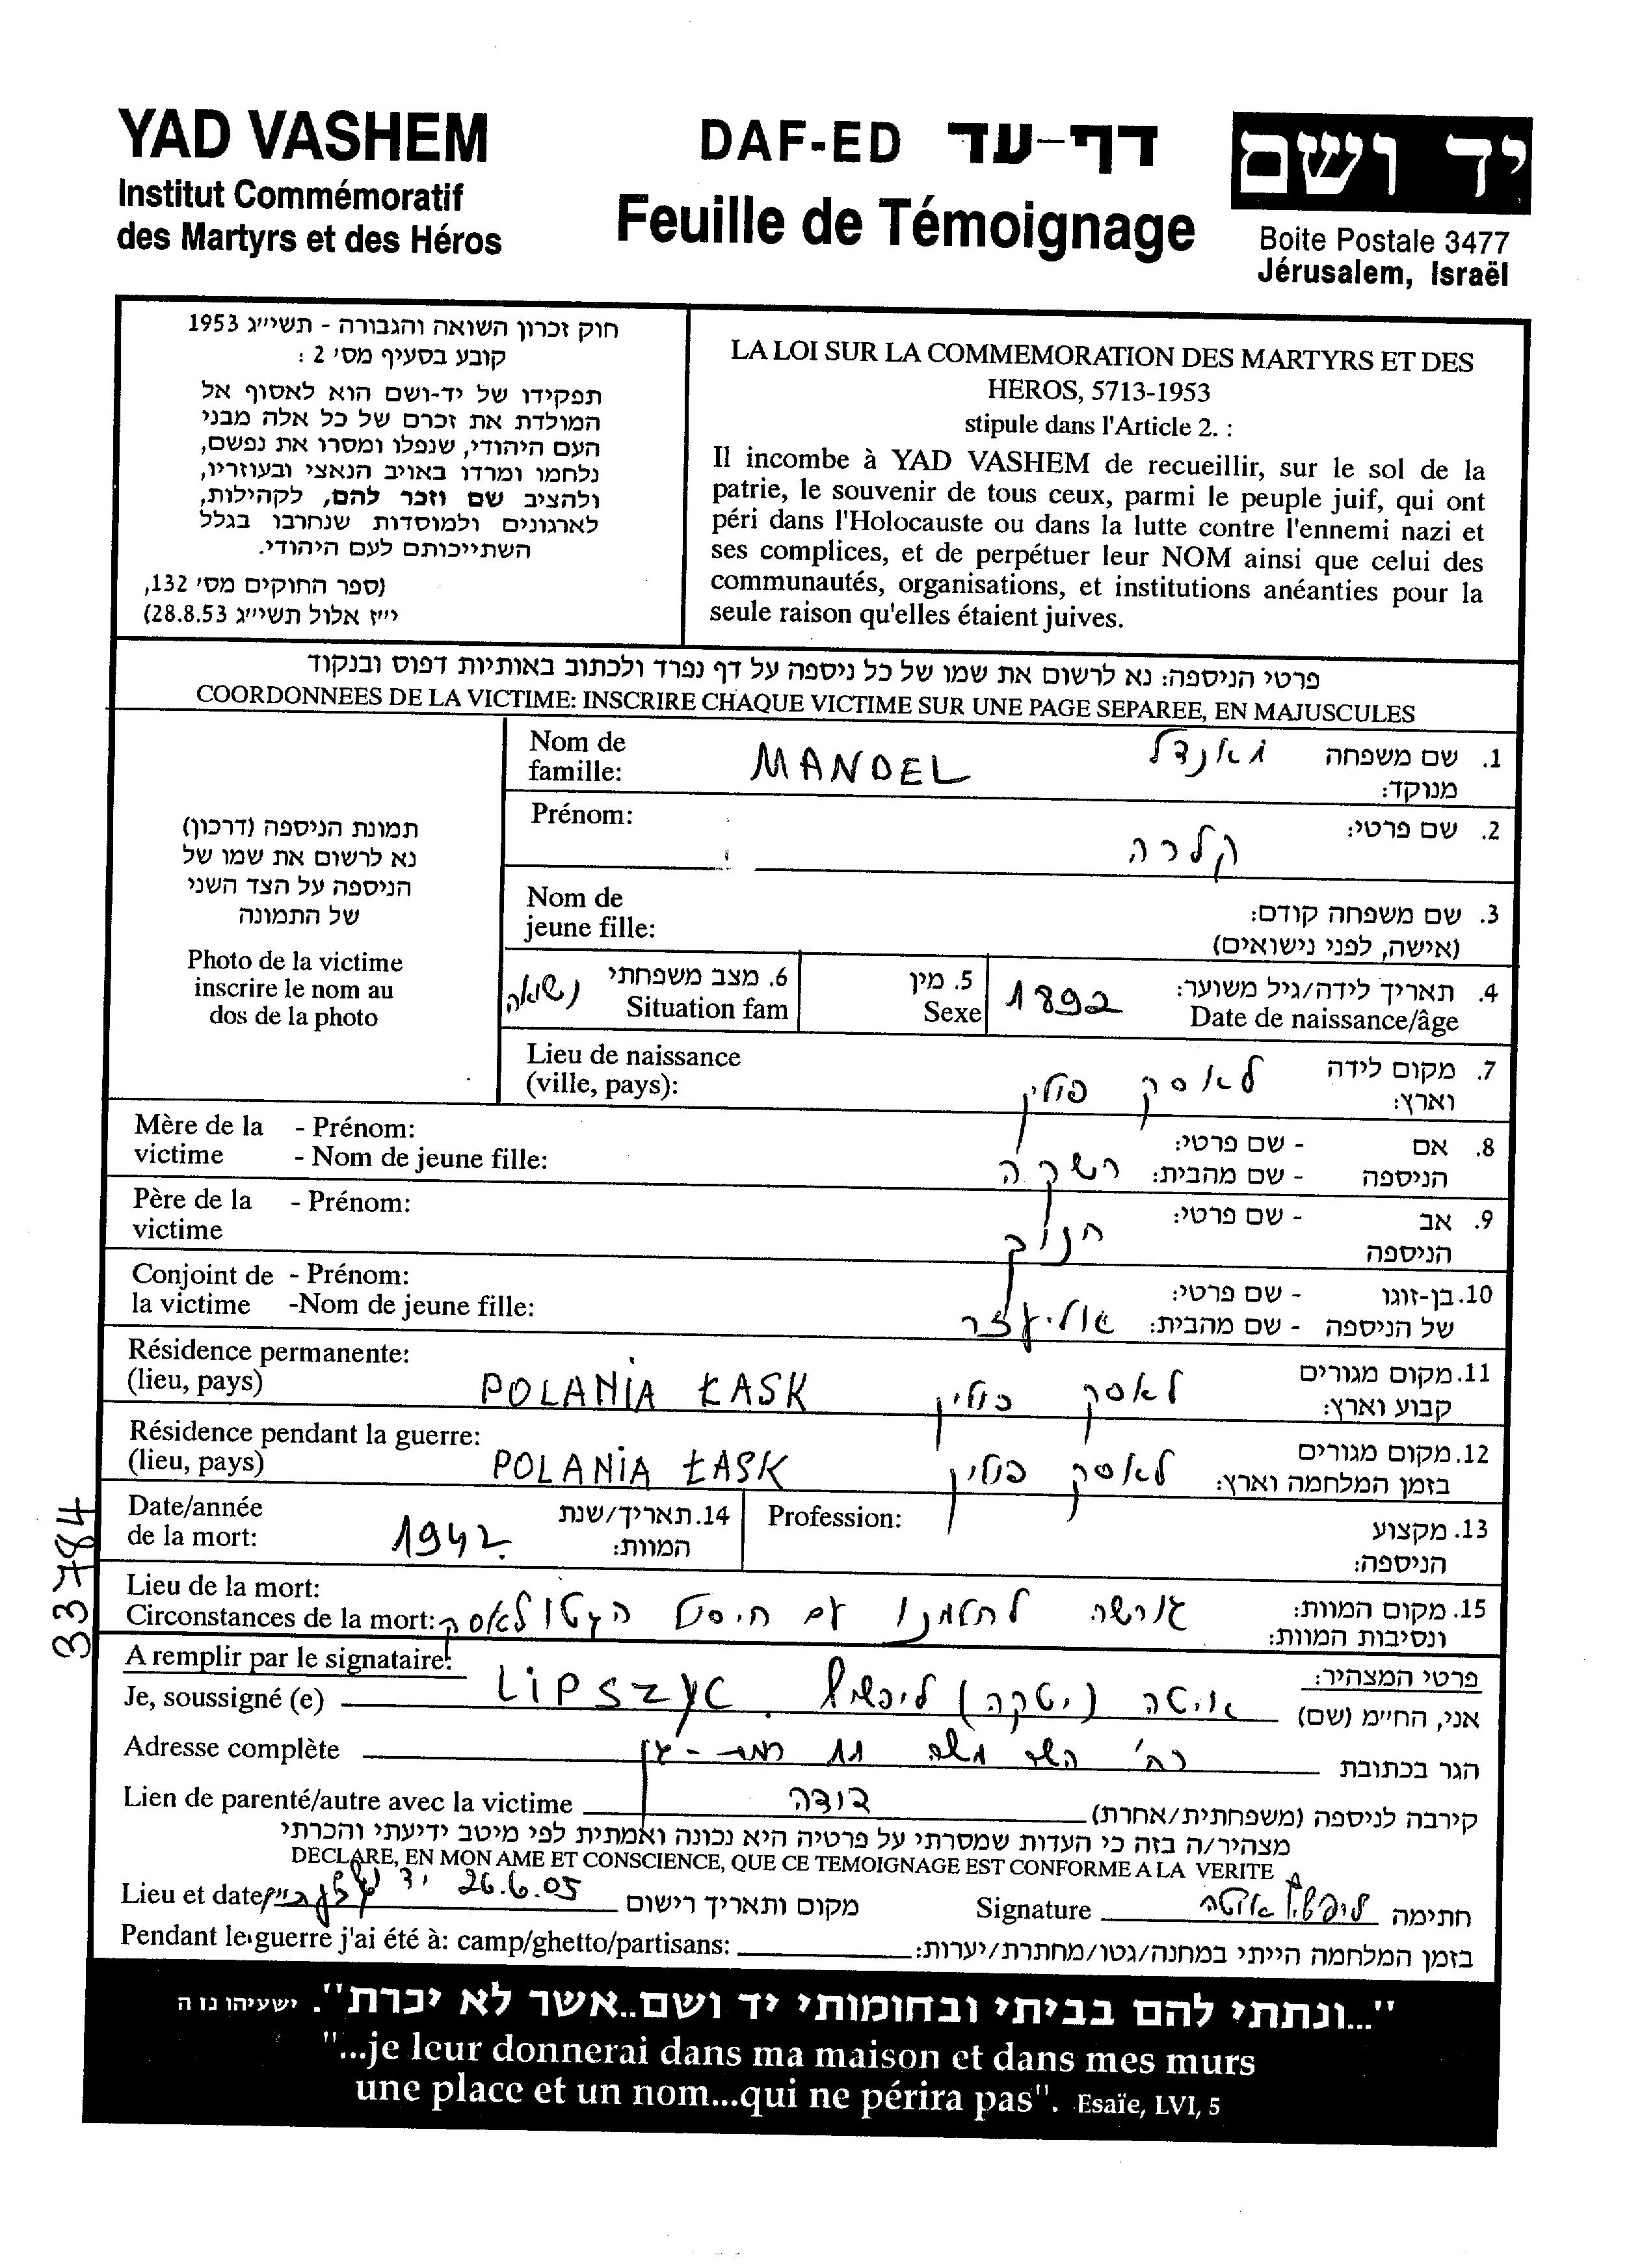 YAD VASHEM
Institut Commémoratif
des Martyrs et des Héros
DAF-ED דף-עד
Feuille de Témoignage
יד ושם
Boite Postale 3477
Jérusalem, Israël
חוק זכרון השואה והגבורה - תשי״ג 1953
קובע בסעיף מס׳ 2 :
תפקידו של יד-ושם הוא לאסוף אל
המולדת את זכרם של כל אלה מבני
העם היהודי, שנפלו ומסרו את נפשם,
נלחמו ומרדו באויב הנאצי ובעוזריו,
ולהציב שם וזכר להם, לקהילות,
לארגונים ולמוסדות שנחרבו בגלל
השתייכותם לעם היהודי.
(ספר החוקים מס׳ 132,
י״ז אלול תשי״ג 28.8.53)
LA LOI SUR LA COMMEMORATION DES MARTYRS ET DES
HEROS, 5713-1953
stipule dans l'Article 2. :
Il incombe à YAD VASHEM de recueillir, sur le sol de la
patrie, le souvenir de tous ceux, parmi le peuple juif, qui ont
péri dans l'Holocauste ou dans la lutte contre l'ennemi nazi et
ses complices, et de perpétuer leur NOM ainsi que celui des
communautés, organisations, et institutions anéanties pour la
seule raison qu'elles étaient juives.
פרטי הניספה: נא לרשום את שמו של כל ניספה על דף נפרד ולכתוב באותיות דפוס ובנקוד
COORDONNEES DE LA VICTIME: INSCRIRE CHAQUE VICTIME SUR UNE PAGE SEPAREE, EN MAJUSCULES
תמונת הניספה (דרכון)
נא לרשום את שמו של
הניספה על הצד השני
של התמונה
Photo de la victime
inscrire le nom au
dos de la photo
Nom de
famille:
MANDEL
מאנדל
1. שם משפחה
מנוקד:
Prénom:
קלרה
2. שם פרטי:
Nom de
jeune fille:
3. שם משפחה קודם:
(אישה, לפני נישואים)
נשואה
6. מצב משפחתי
Situation fam
5. מין
Sexe
1892
4. תאריך לידה/גיל משוער:
Date de naissance/âge
Lieu de naissance
(ville, pays):
לאסק פולין
7. מקום לידה
וארץ:
Mère de la - Prénom:
victime - Nom de jeune fille:
רשקה
8. אם - שם פרטי:
הניספה - שם מהבית:
Père de la - Prénom:
victime
חנוך
9. אב - שם פרטי:
הניספה
Conjoint de - Prénom:
la victime -Nom de jeune fille:
אליעזר
10. בן-זוגו - שם פרטי:
של הניספה - שם מהבית:
Résidence permanente:
(lieu, pays)
POLANIA ŁASK
לאסק פולין
11. מקום מגורים
קבוע וארץ:
Résidence pendant la guerre:
(lieu, pays)
POLANIA ŁASK
לאסק פולין
12. מקום מגורים
בזמן המלחמה וארץ:
Date/année
de la mort:
1942
14. תאריך/שנת
המוות:
Profession:
13. מקצוע
הניספה:
Lieu de la mort:
Circonstances de la mort:
גורשה לחלמנו עם חיסול הגטו לאסק
15. מקום המוות:
ונסיבות המוות:
33784
A remplir par le signataire:
פרטי המצהיר:
Je, soussigné (e)
LIPSZYC
איטה (יטקה) ליפשיץ
אני, החי״מ (שם)
Adresse complète
רח׳ משה 11 רמת-גן
הגר בכתובת
Lien de parenté/autre avec la victime
דודה
קירבה לניספה (משפחתית/אחרת)
מצהיר/ה בזה כי העדות שמסרתי על פרטיה היא נכונה ואמתית לפי מיטב ידיעתי והכרתי
DECLARE, EN MON AME ET CONSCIENCE, QUE CE TEMOIGNAGE EST CONFORME A LA VERITE
Lieu et date
26.6.05
מקום ותאריך רישום
Signature
ליפשיץ איטה
חתימה
Pendant le guerre j'ai été à: camp/ghetto/partisans:
בזמן המלחמה הייתי במחנה/גטו/מחתרת/יערות:
"...ונתתי להם בביתי ובחומותי יד ושם..אשר לא יכרת". ישעיהו נז ה
"...je leur donnerai dans ma maison et dans mes murs
une place et un nom...qui ne périra pas". Esaïe, LVI, 5